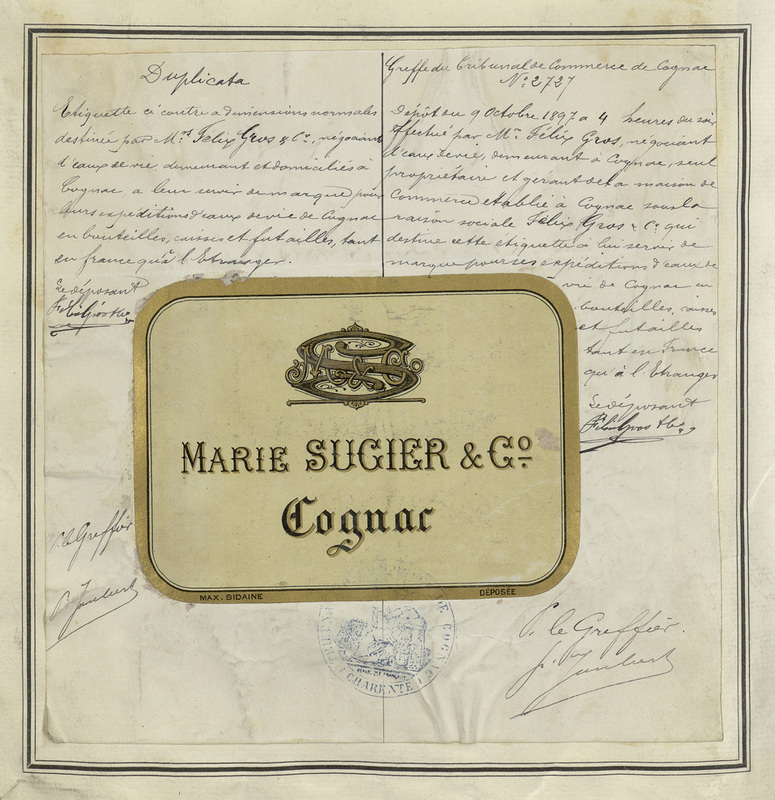 Duplicata
Etiquette ci contre a dimensions normales
destinée par Mrs Félix Gros & Co, négociant
d'eaux de vie, demeurant et domiciliés à
Cognac a leur servir de marque pour
leurs expéditions d'eaux de vie de Cognac
en bouteilles, caisses et futailles, tant
en france qu'à l'Etranger.
Le déposant
Felix Gros & Co
P. le Greffier
P. Joubert
Greffe du Tribunal de Commerce de Cognac
No 2727
Dépôt du 9 Octobre 1897 a 4 heures du soir
effectué par Mr Félix Gros, négociant
d'eaux de vie, demeurant à Cognac, seul
propriétaire et gérant de la maison de
Commerce établie à Cognac sous la
raison sociale Félix Gros & Co qui
destine cette etiquette à lui servir de
marque pour ses expéditions d'eaux de
vie de Cognac en
bouteilles, caisses
et futailles
tant en France
qu'à l'Etranger
Le déposant
Felix Gros & Co
M S & Co
MARIE SUGIER & Co
Cognac
MAX. SIDAINE
DÉPOSÉE
DE COGNAC
CHARENTE
P. le Greffier.
p. Joubert